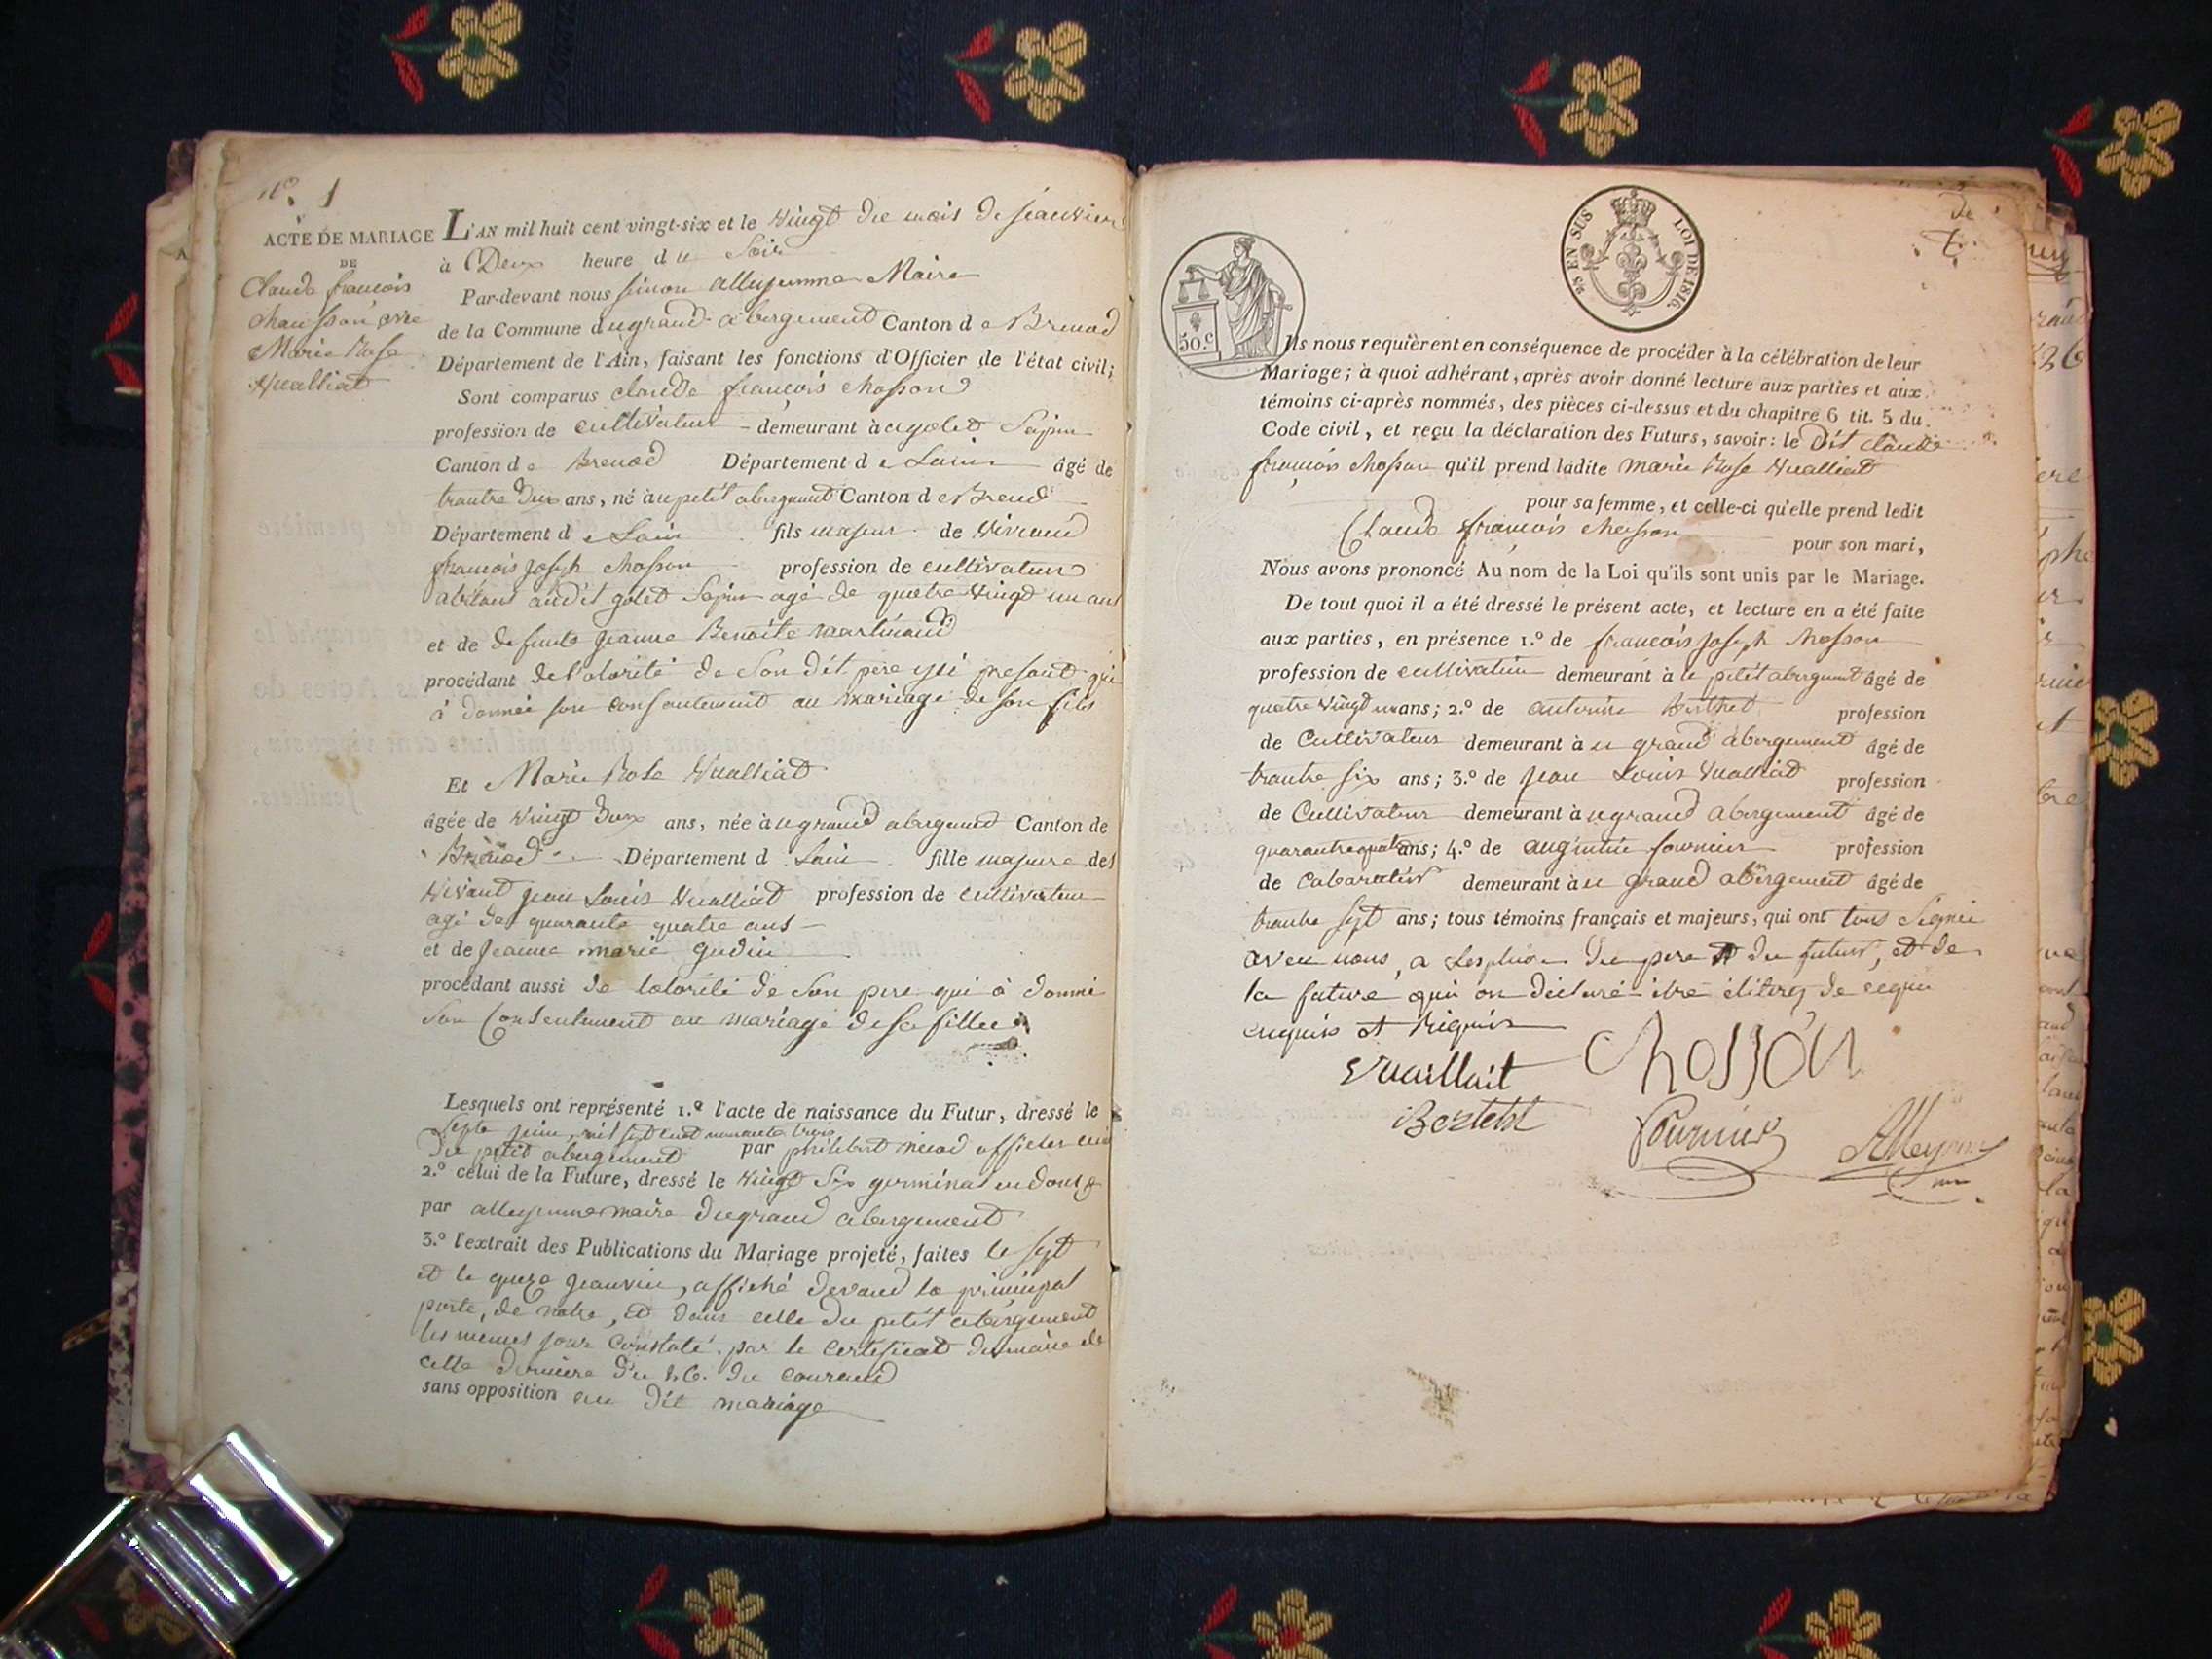 N.° 1
ACTE DE MARIAGE
DE
Claude francois
chausson et
Marie Rose
Vualliat
L'AN mil huit cent vingt-six et le vingt du mois de jeauvier
à Deux heure du Soir
Par-devant nous simon alleyjeunne Maire
de la Commune du grand abergement Canton de Brenod
Département de l'Ain, faisant les fonctions d'Officier de l'état civil;
Sont comparus claude françois chosson
profession de cultivateur demeurant à golet Sapin
Canton de Brenod Département de Lain âgé de
trantre deux ans, né au petit abergement Canton de Brenod
Département de Lain fils majeur de vivand
francois joseph chosson profession de cultivateur
abitant audit golet Sapin agé de quatre vingt un ans
et de defunte jeanne Benoite martinand
procédant de l'otorité de son dit pere ysi presant qui
à donnée son consantement au mariage de son fils
Et Marie Rose Vualliat
âgée de vingt deux ans, née au grand abergement Canton de
Brénod Département d Lain fille majure de
vivant jean Louis Vualliat profession de cultivateur
agé de quarante quatre ans
et de jeanne marie gudin
procédant aussi de lotorité de son pere qui à donné
Son Consentement au mariage de sa fille
Lesquels ont représenté 1.° l'acte de naissance du Futur, dressé le
Septe juin, mil sept cent nonante trois
du petit abergement par philibert officier
2.° celui de la Future, dressé le vingt Six germinal en douse
par alleyjeunne maire du grand abergement
3.° l'extrait des Publications du Mariage projeté, faites le sept
et le quinze jeanvier, affiché devand la principal
porte, de notre, et dans celle du petit abergement
les memes jour constaté par le certificat du maire de
cette derniere du 16. du courand
sans opposition au dit mariage
EN SUS LOI DE 1816.
50.c
Ils nous requièrent en conséquence de procéder à la célébration de leur
Mariage; à quoi adhérant, après avoir donné lecture aux parties et aux
témoins ci-après nommés, des pièces ci-dessus et du chapitre 6 tit. 5 du
Code civil, et reçu la déclaration des Futurs, savoir: le dit claude
françois chosson qu'il prend ladite marie Rose Vualliat
pour sa femme, et celle-ci qu'elle prend ledit
Claude françois chosson
pour son mari,
Nous avons prononcé Au nom de la Loi qu'ils sont unis par le Mariage.
De tout quoi il a été dressé le présent acte, et lecture en a été faite
aux parties, en présence 1.° de francois joseph chosson
profession de cultivateur demeurant à le petit abergement âgé de
quatre vingt un ans; 2.° de antoine Berthet profession
de Cultivateur demeurant à u grand abergement âgé de
trantre six ans; 3.° de jean Louis Vualliat profession
de Cultivateur demeurant à u grand abergement âgé de
quarantre quatre ans; 4.° de fournier profession
de cabaretier demeurant à u grand abergement âgé de
trantre sept ans; tous témoins français et majeurs, qui ont tous Signée
avec nous, a du pere et du futur, et de
la future qui on déclaré être
enquis et Requis
Vuailliait Chosson
Bertetht Fournier Alleyjeunne